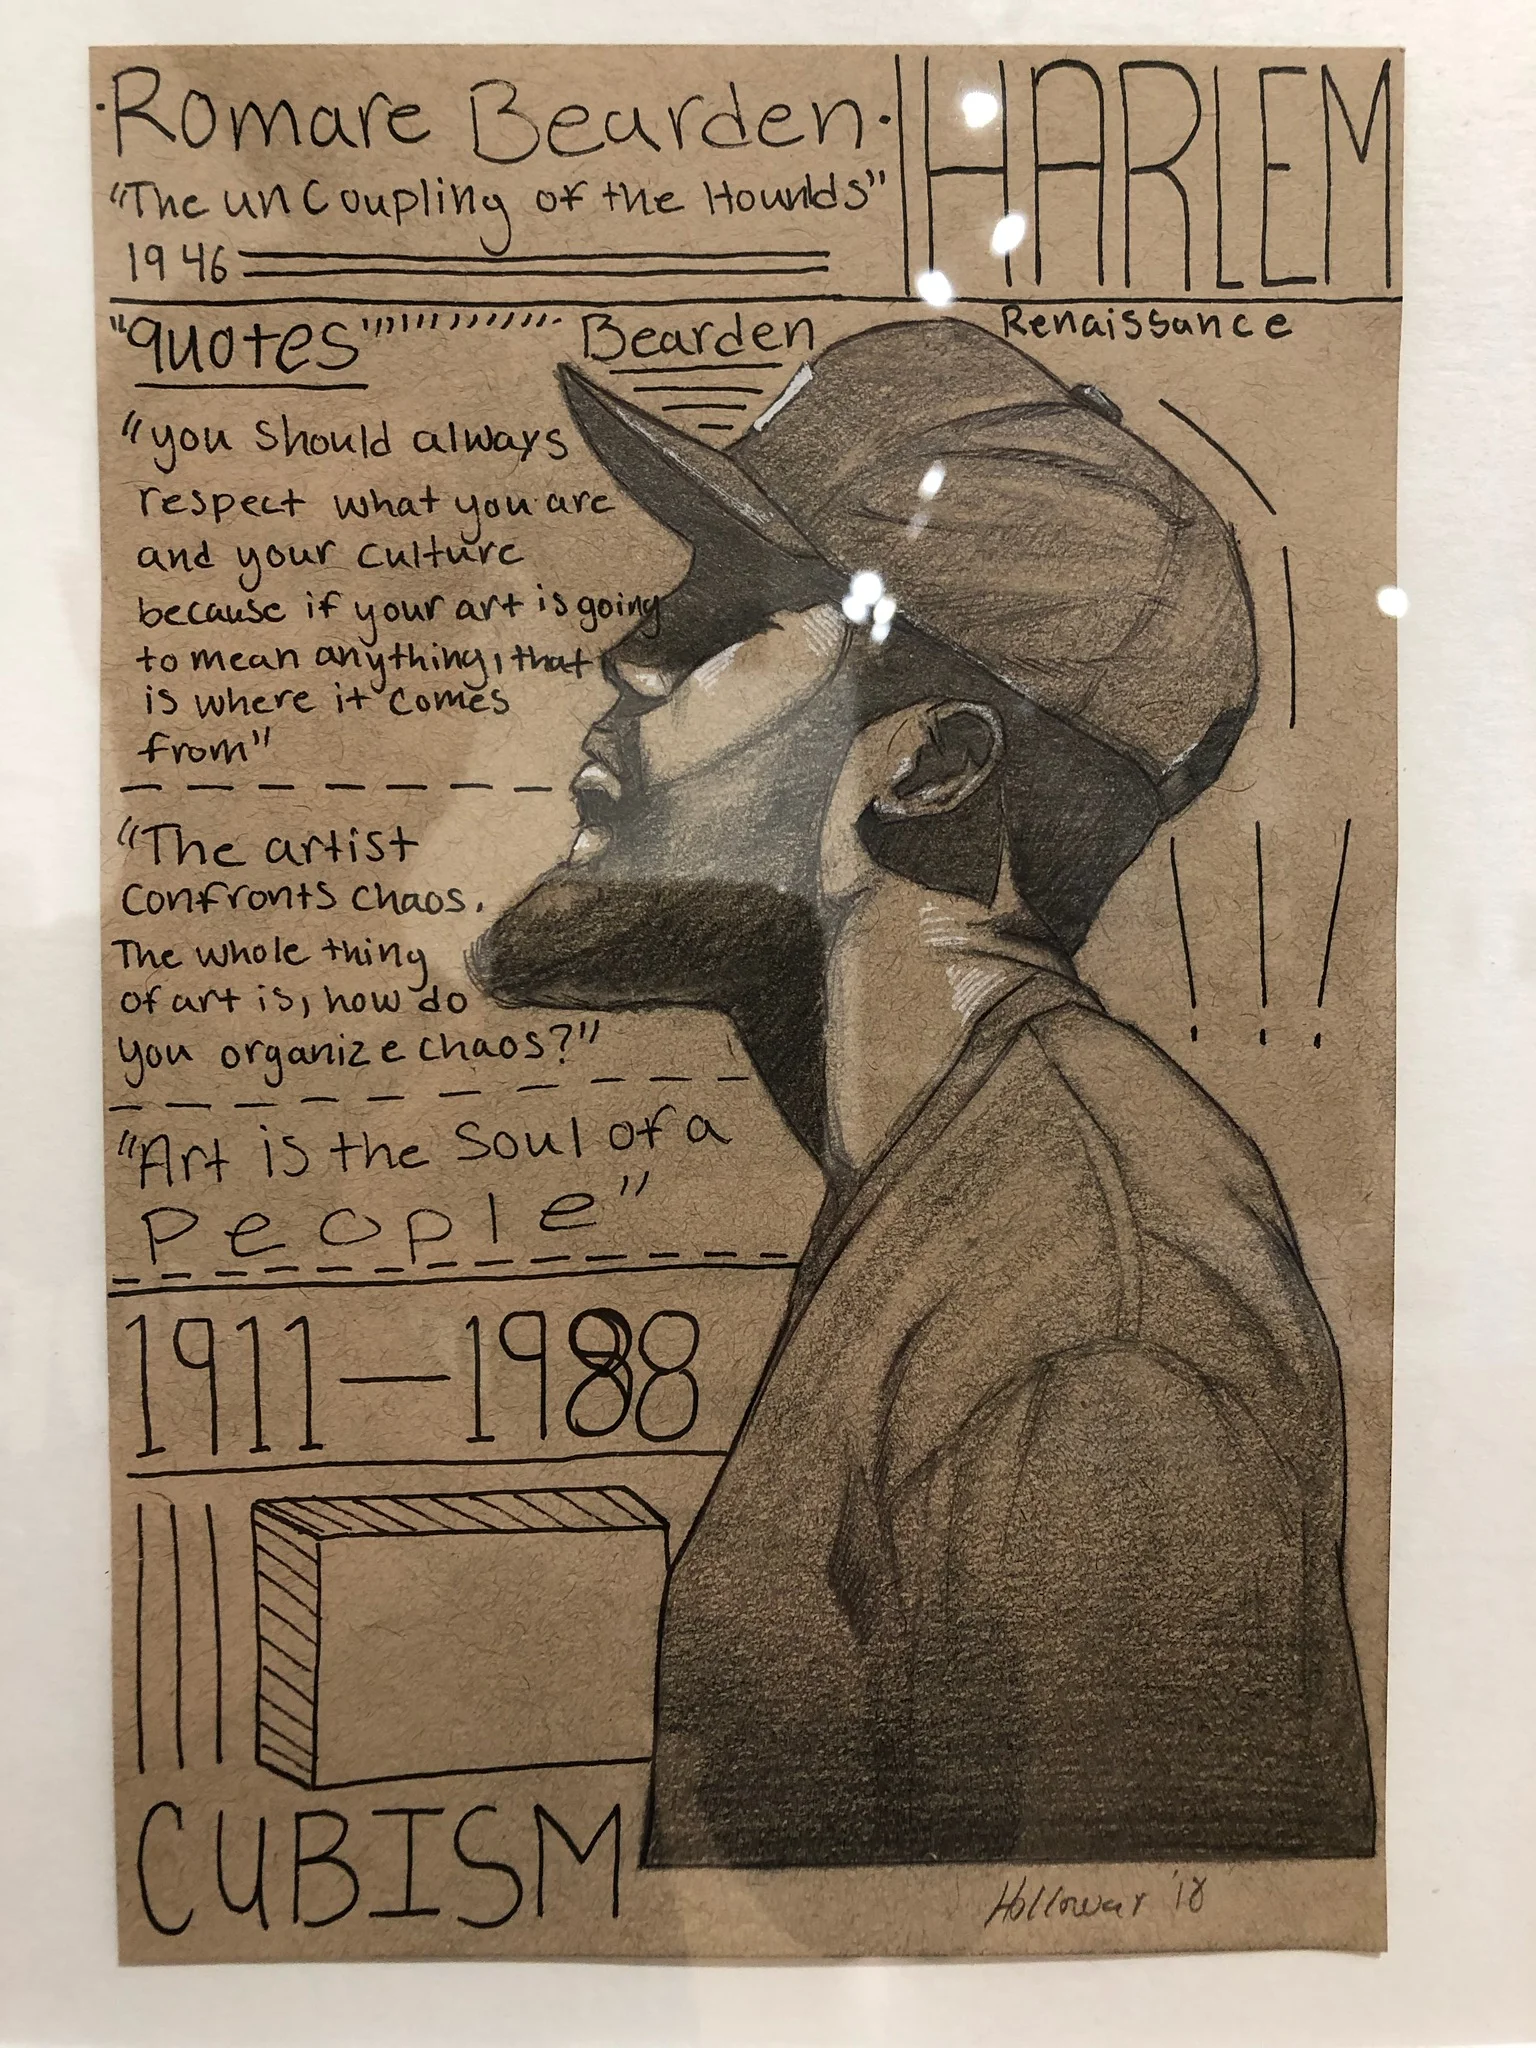 ·Romare Bearden·
"The unCoupling of the Hounlds"
1946
HARLEM
Renaissance
"quotes"
Bearden
"you should always
respect what you are
and your culture
because if your art is going
to mean anything, that
is where it comes
from"
"The artist
confronts chaos.
The whole thing
of art is, how do
you organize chaos?"
"Art is the soul of a
People"
1911—1988
CUBISM
'18